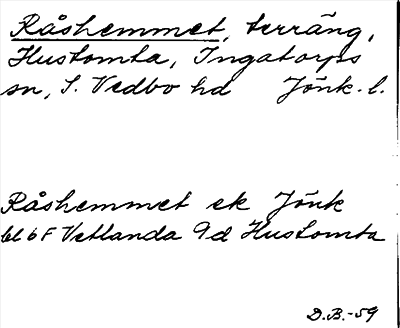 Råshemmet, terräng,
Hustomta, Ingatorps
sn, S. Vedbo hd Jönk. l.
Råshemmet ek Jönk
bl 6F Vetlanda 9d Hustomta
D.B.-59